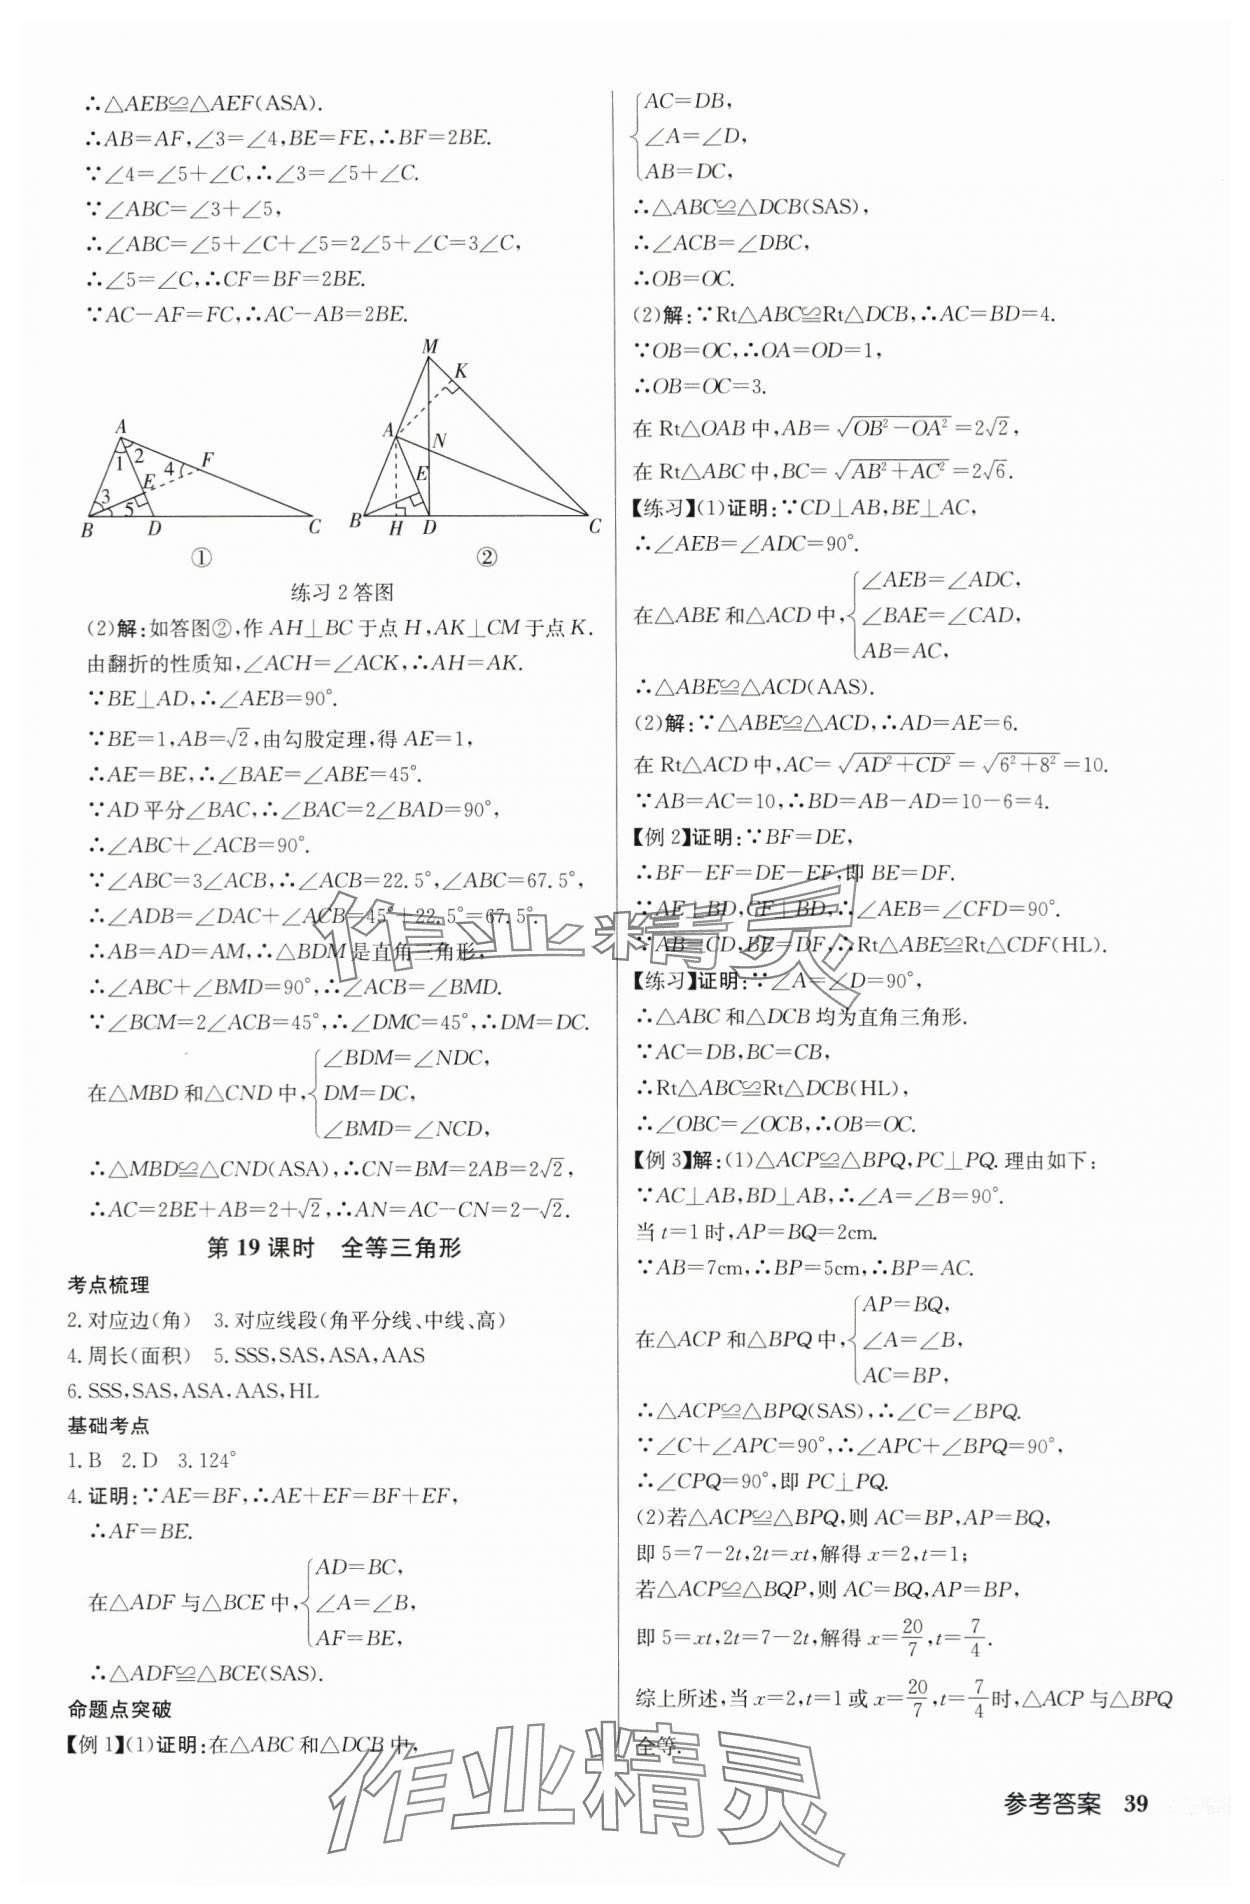 ∴△AEB≌△AEF(ASA).
∴AB=AF,∠3=∠4,BE=FE,∴BF=2BE.
∵∠4=∠5+∠C,∴∠3=∠5+∠C.
∵∠ABC=∠3+∠5,
∴∠ABC=∠5+∠C+∠5=2∠5+∠C=3∠C,
∴∠5=∠C,∴CF=BF=2BE.
∵AC-AF=FC,∴AC-AB=2BE.
A 1 2 3 4 5 E F B D C
①
M K A N E B H D C
②
练习2答图
(2)解:如答图②,作AH⊥BC于点H,AK⊥CM于点K.
由翻折的性质知,∠ACH=∠ACK,∴AH=AK.
∵BE⊥AD,∴∠AEB=90°.
∵BE=1,AB=√2,由勾股定理,得AE=1,
∴AE=BE,∴∠BAE=∠ABE=45°.
∵AD平分∠BAC,∴∠BAC=2∠BAD=90°,
∴∠ABC+∠ACB=90°.
∵∠ABC=3∠ACB,∴∠ACB=22.5°,∠ABC=67.5°,
∴∠ADB=∠DAC+∠ACB=45°+22.5°=67.5°.
∴AB=AD=AM,∴△BDM是直角三角形,
∴∠ABC+∠BMD=90°,∴∠ACB=∠BMD.
∵∠BCM=2∠ACB=45°,∴∠DMC=45°,∴DM=DC.
∠BDM=∠NDC,
在△MBD和△CND中,{DM=DC,
∠BMD=∠NCD,
∴△MBD≌△CND(ASA),∴CN=BM=2AB=2√2,
∴AC=2BE+AB=2+√2,∴AN=AC-CN=2-√2.
第19课时 全等三角形
考点梳理
2.对应边(角) 3.对应线段(角平分线、中线、高)
4.周长(面积) 5.SSS,SAS,ASA,AAS
6.SSS,SAS,ASA,AAS,HL
基础考点
1.B 2.D 3.124°
4.证明:∵AE=BF,∴AE+EF=BF+EF,
∴AF=BE.
AD=BC,
在△ADF与△BCE中,{∠A=∠B,
AF=BE,
∴△ADF≌△BCE(SAS).
命题点突破
【例1】(1)证明:在△ABC和△DCB中,
AC=DB,
{∠A=∠D,
AB=DC,
∴△ABC≌△DCB(SAS),
∴∠ACB=∠DBC,
∴OB=OC.
(2)解:∵Rt△ABC≌Rt△DCB,∴AC=BD=4.
∵OB=OC,∴OA=OD=1,
∴OB=OC=3.
在Rt△OAB中,AB=√(OB²-OA²)=2√2,
在Rt△ABC中,BC=√(AB²+AC²)=2√6.
【练习】(1)证明:∵CD⊥AB,BE⊥AC,
∴∠AEB=∠ADC=90°.
∠AEB=∠ADC,
在△ABE和△ACD中,{∠BAE=∠CAD,
AB=AC,
∴△ABE≌△ACD(AAS).
(2)解:∵△ABE≌△ACD,∴AD=AE=6.
在Rt△ACD中,AC=√(AD²+CD²)=√(6²+8²)=10.
∵AB=AC=10,∴BD=AB-AD=10-6=4.
【例2】证明:∵BF=DE,
∴BF-EF=DE-EF,即BE=DF.
∵AE⊥BD,CF⊥BD,∴∠AEB=∠CFD=90°.
∵AB=CD,BE=DF,∴Rt△ABE≌Rt△CDF(HL).
【练习】证明:∵∠A=∠D=90°,
∴△ABC和△DCB均为直角三角形.
∵AC=DB,BC=CB,
∴Rt△ABC≌Rt△DCB(HL),
∴∠OBC=∠OCB,∴OB=OC.
【例3】解:(1)△ACP≌△BPQ,PC⊥PQ.理由如下:
∵AC⊥AB,BD⊥AB,∴∠A=∠B=90°.
当t=1时,AP=BQ=2cm.
∵AB=7cm,∴BP=5cm,∴BP=AC.
AP=BQ,
在△ACP和△BPQ中,{∠A=∠B,
AC=BP,
∴△ACP≌△BPQ(SAS),∴∠C=∠BPQ.
∵∠C+∠APC=90°,∴∠APC+∠BPQ=90°,
∴∠CPQ=90°,即PC⊥PQ.
(2)若△ACP≌△BPQ,则AC=BP,AP=BQ,
即5=7-2t,2t=xt,解得x=2,t=1;
若△ACP≌△BQP,则AC=BQ,AP=BP,
即5=xt,2t=7-2t,解得x=20/7,t=7/4.
综上所述,当x=2,t=1或x=20/7,t=7/4时,△ACP与△BPQ
全等.
参考答案 39
作业精灵
作业精灵